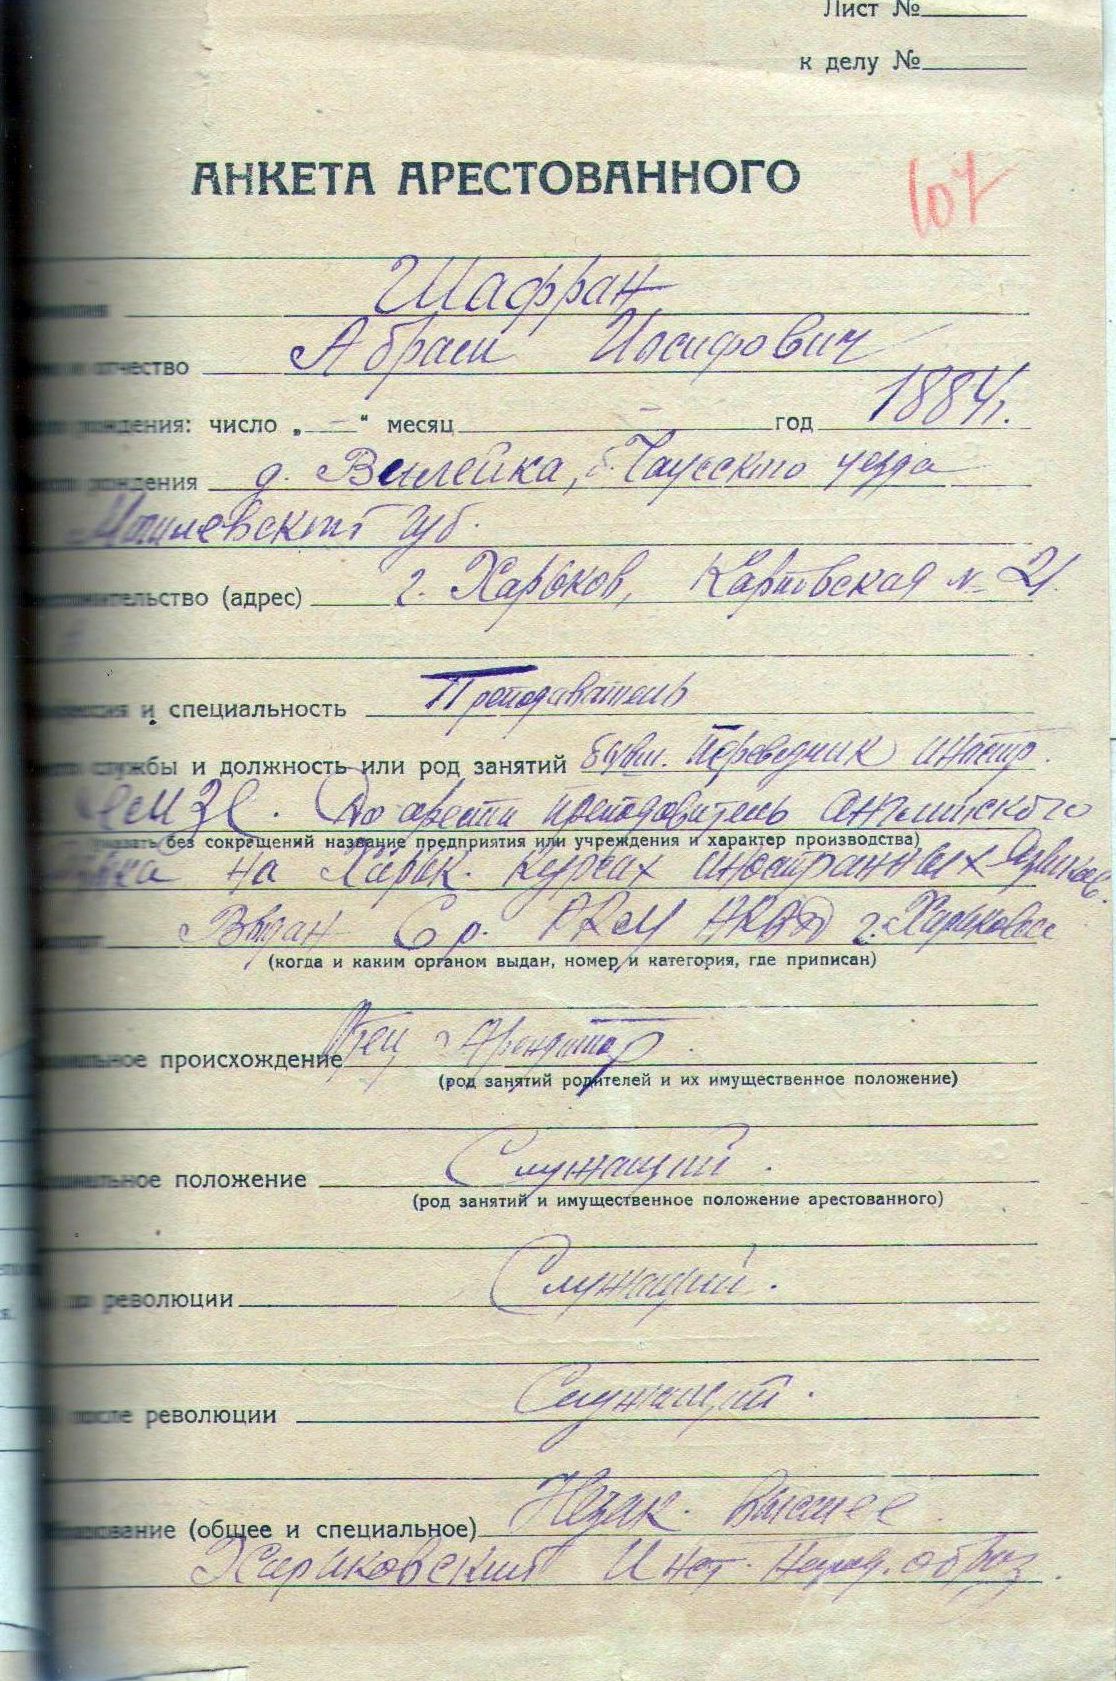 Лист №
к делу №
АНКЕТА АРЕСТОВАННОГО
107
Шафран
Абрам Иосифович
отчество
рождения: число „ — “ месяц — год 1884 г.
рождения д. Вилейка, б. Чаусского уезда
Могилевской губ.
жительство (адрес) г. Харьков, Карповская № 21.
и специальность Преподаватель
службы и должность или род занятий бывш. переводчик иностр.
До ареста преподаватель английского
без сокращений название предприятия или учреждения и характер производства)
на Харьк. курсах иностранных языков.
Выдан 6 р. РКМ НКВД г. Харькова
(когда и каким органом выдан, номер и категория, где приписан)
происхождение Отец арендатор.
(род занятий родителей и их имущественное положение)
положение Служащий.
(род занятий и имущественное положение арестованного)
до революции Служащий.
после революции Служащий.
(общее и специальное) Незак. высшее
Харьковский Инст. народ. образ.